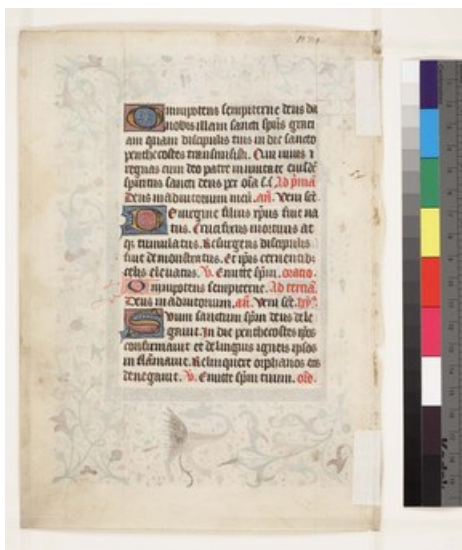 Omnipotens sempiterne deus da
nobis illam sancti spūs grati
am quam discipulis tuis in die sancto
penthecostes transmisisti. Qui vivis ⁊
regnas cum deo patre in unitate eiusdē
spiritus sancti deus per oīa s.s. Ad p̄mā
Deus in adiutorium meū. añ. Veni scē.
De virgine filius xp̄us fuit na
tus. Crucifixus mortuus at
qꝫ tumulatus. Resurgens discipulis
fuit demonstratus. Et ip̄is cernentibꝫ
celis elevatus. V. Emitte sp̄m. oratio
Omnipotens sempiterne. Ad terciā.
Deus in adiutorium. añ. Veni scē. hyꝰ.
Suum sanctum sp̄m deus dele
gavit. In die penthecostes ip̄os
confirmavit et de linguis igneis ipsos
inflāmavit. Relinquere orphanos eos
denegavit. V. Emitte sp̄m tuum. orō.